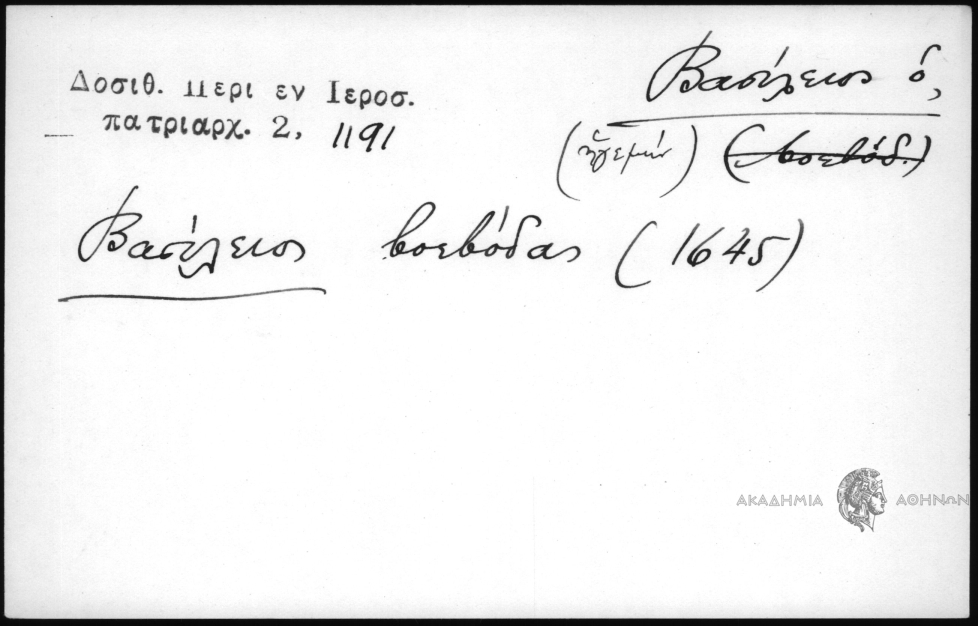 Δοσιθ. Περι εν Ιεροσ.
πατριαρχ. 2, 1191
Βασίλειος ὁ,
(ἡγεμών) (βοεβόδ.)
Βασίλειος βοεβόδας (1645)
ΑΚΑΔΗΜΙΑ ΑΘΗΝΩΝ